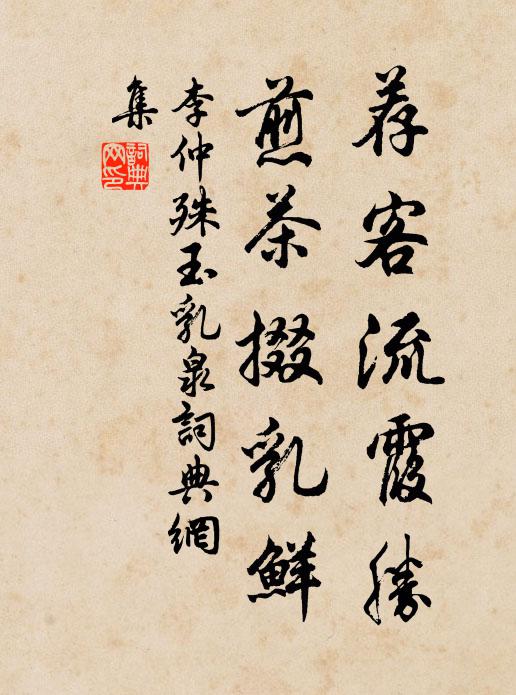 荐客流霞勝
煎茶掇乳鮮
李仲殊玉乳泉詞典網
集
詞典網印